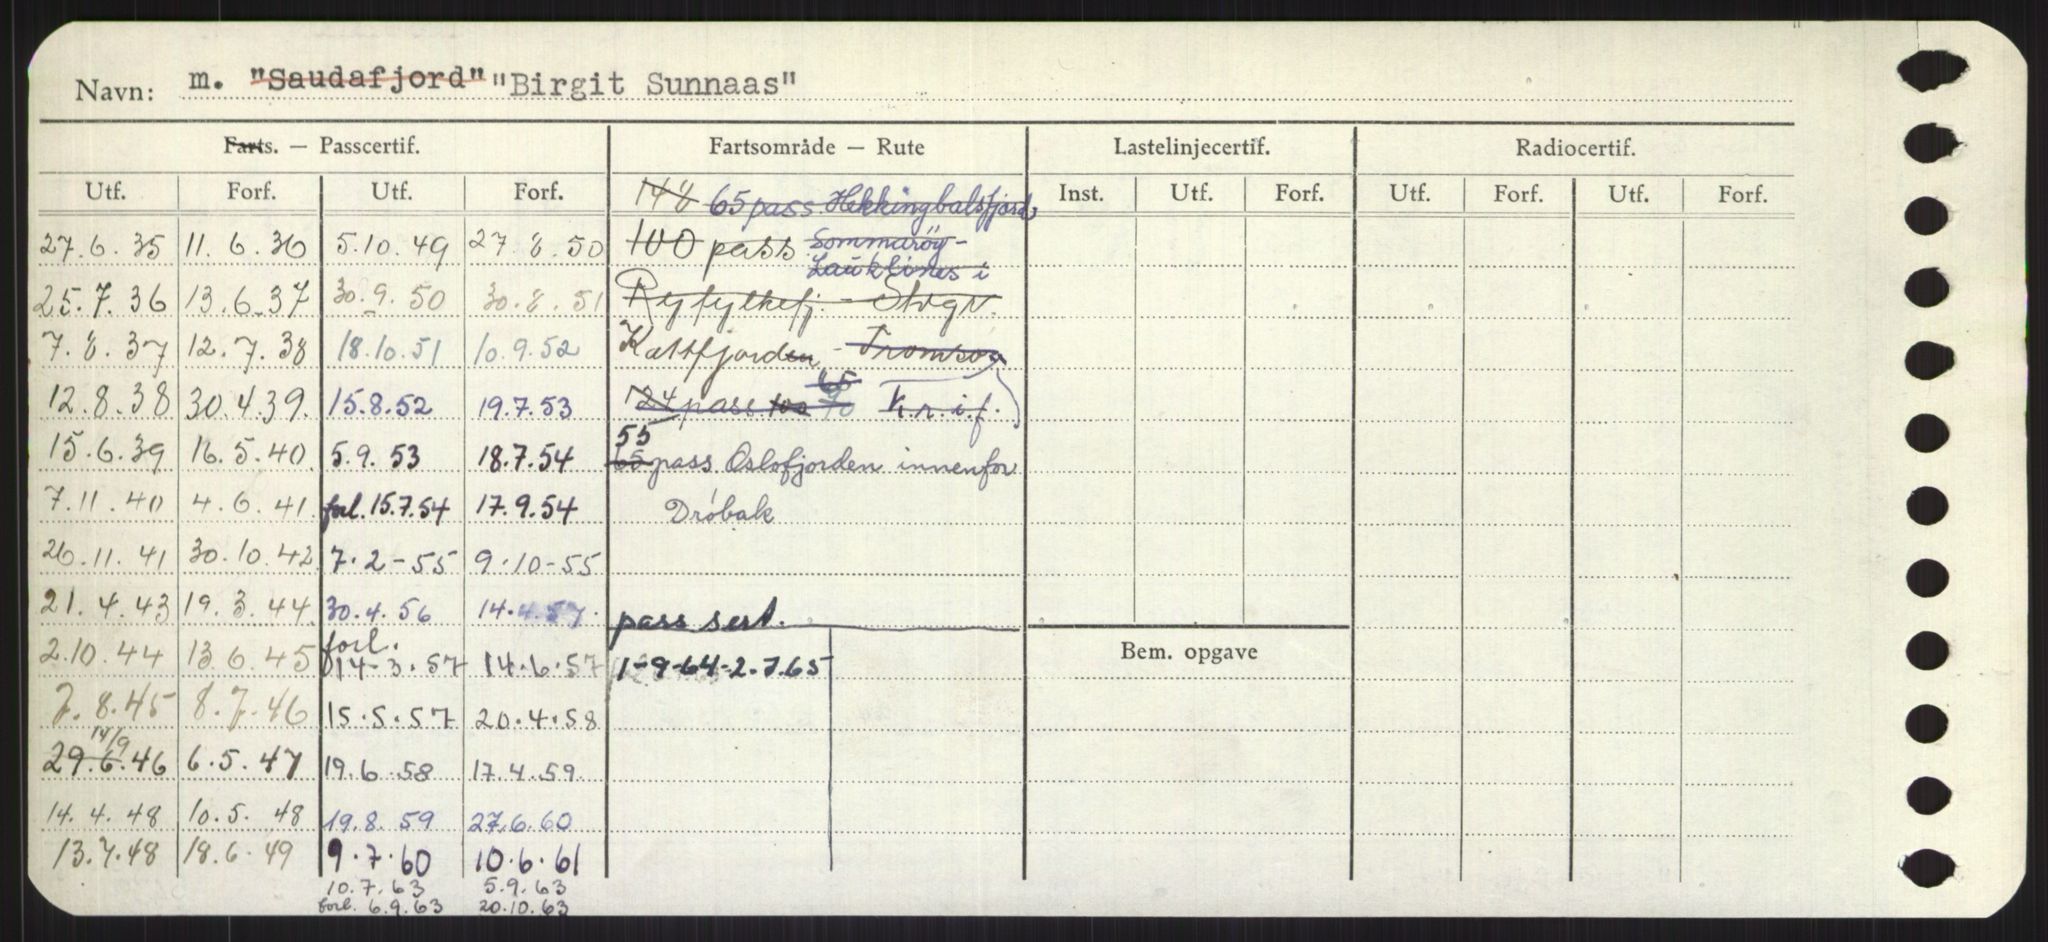 Navn: m. "Saudafjord" "Birgit Sunnaas"
Farts. — Passcertif. Fartsområde — Rute Lastelinjecertif. Radiocertif.
Utf. Forf. Utf. Forf. 148 65 pass. Hekkingbalsfjord Inst. Utf. Forf. Utf. Forf. Utf. Forf.
27.6.35 11.6.36 5.10.49 27.8.50 100 pass Sommarøy-
Lauklines i
25.7.36 13.6.37 30.9.50 30.8.51 Ryfylkefj. - Stvgr.
7.8.37 12.7.38 18.10.51 10.9.52 Kattfjorden - Tromsø
65
12.8.38 30.4.39. 15.8.52 19.7.53 124 pass 100 90 K.r.i.f.
55
15.6.39 16.5.40. 5.9.53 18.7.54 65 pass Oslofjorden innenfor
7.11.40 4.6.41. forl. 15.7.54 17.9.54 Drøbak
26.11.41 30.10.42. 7.2-55 9.10-55
21.4.43 19.3.44. 30.4.56 14.4.57. pass sert.
forl.
2.10.44 13.6.45 14-3.57 14.6.57 1-9-64-2.7.65 Bem. opgave
7.8.45 8.7.46 15.5.57 20.4.58
14/9
29.6.46 6.5.47 19.6.58 17.4.59
14.4.48 10.5.48 19.8.59 27.6.60
13.7.48 18.6.49 9.7.60 10.6.61
10.7.63 5.9.63
forl. 6.9.63 20.10.63